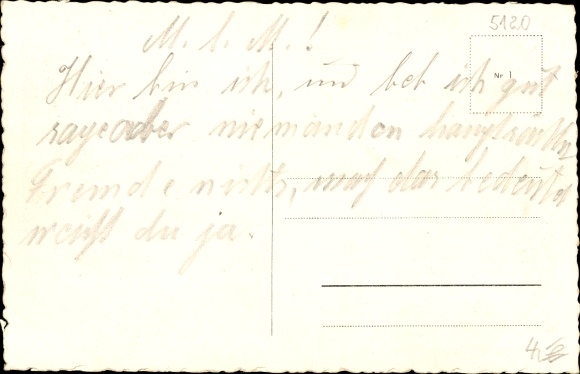 5120
M. l. M.!
Nr 1
Hier bin ich, und bet ich gut
sage aber niemanden hauptsächl.
Fremde nichts, was das bedeutet
weist du ja.